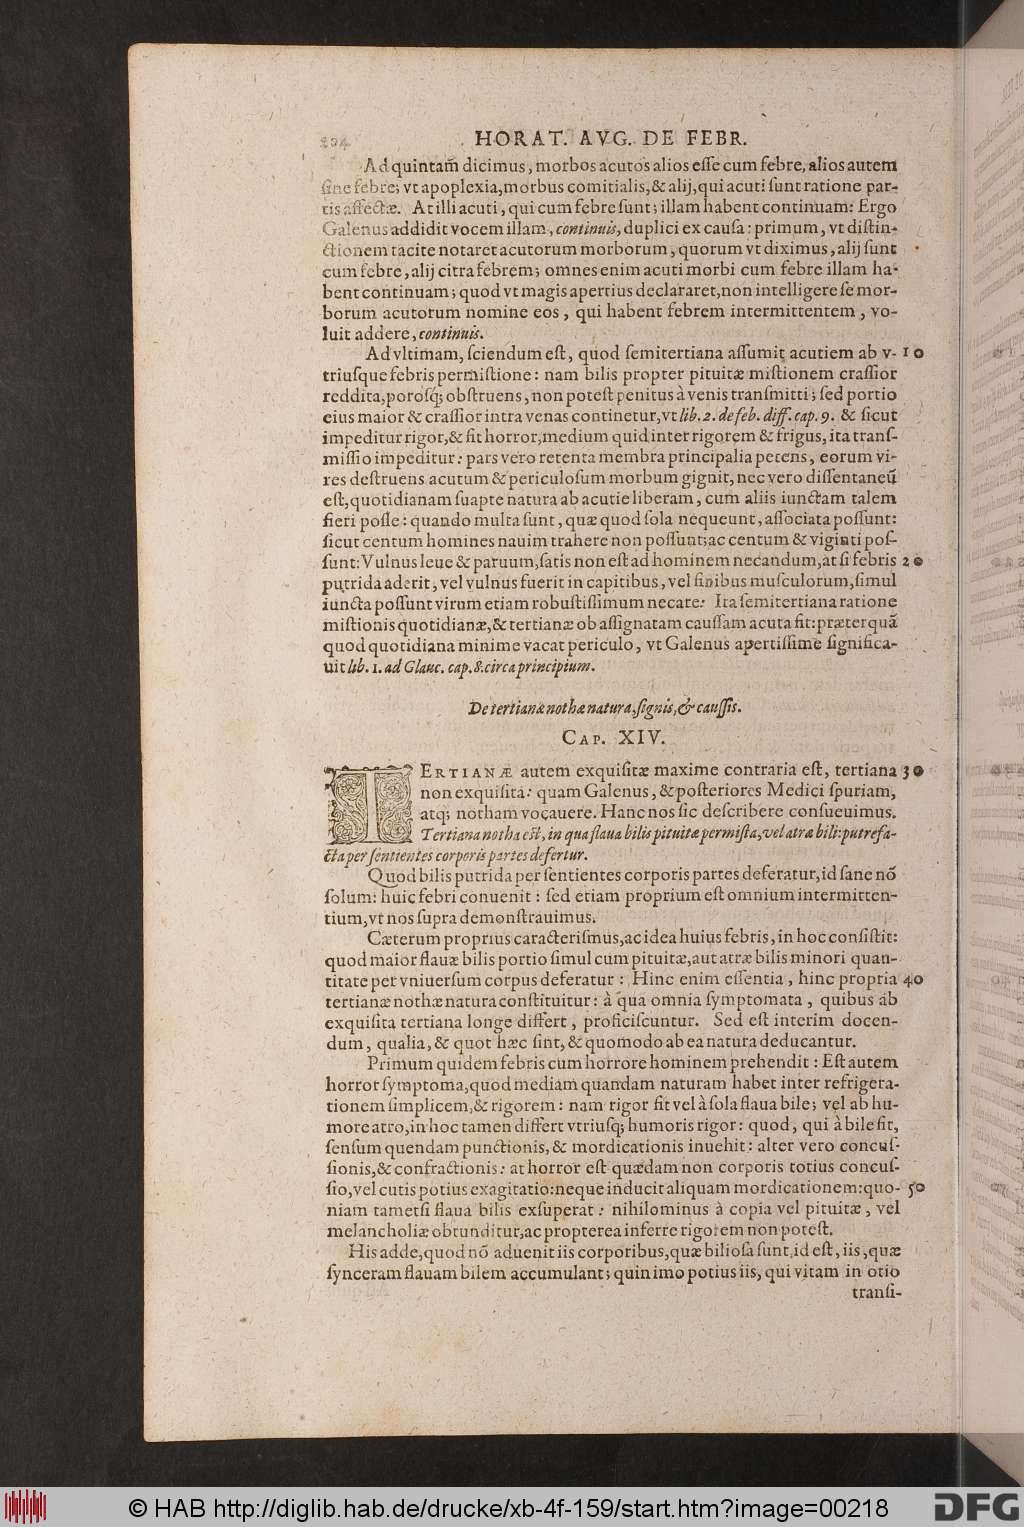 204 HORAT. AVG. DE FEBR.
Ad quintam̃ dicimus, morbos acutos alios eſſe cum febre, alios autem
ſine febre; vt apoplexia, morbus comitialis, & alij, qui acuti ſunt ratione par-
tis affectæ. At illi acuti, qui cum febre ſunt; illam habent continuam: Ergo
Galenus addidit vocem illam, continuis, duplici ex cauſa: primum, vt diſtin-
ctionem tacite notaret acutorum morborum, quorum vt diximus, alij ſunt
cum febre, alij citra febrem; omnes enim acuti morbi cum febre illam ha-
bent continuam; quod vt magis apertius declararet, non intelligere ſe mor-
borum acutorum nomine eos, qui habent febrem intermittentem, vo-
luit addere, continuis.
Ad vltimam, ſciendum eſt, quod ſemitertiana aſſumit acutiem ab v- 10
triuſque febris permiſtione: nam bilis propter pituitæ miſtionem craſſior
reddita, porosq; obſtruens, non poteſt penitus à venis tranſmitti; ſed portio
eius maior & craſſior intra venas continetur, vt lib. 2. de feb. diff. cap. 9. & ſicut
impeditur rigor, & fit horror, medium quid inter rigorem & frigus, ita tranſ-
miſſio impeditur: pars vero retenta membra principalia petens, eorum vi-
res deſtruens acutum & periculoſum morbum gignit, nec vero diſſentaneũ
eſt, quotidianam ſuapte natura ab acutie liberam, cum aliis iunctam talem
fieri poſſe: quando multa ſunt, quæ quod ſola nequeunt, aſſociata poſſunt:
ſicut centum homines nauim trahere non poſſunt; ac centum & viginti poſ-
ſunt: Vulnus leue & paruum, ſatis non eſt ad hominem necandum, at ſi febris 20
putrida aderit, vel vulnus fuerit in capitibus, vel finibus muſculorum, ſimul
iuncta poſſunt virum etiam robuſtiſſimum necare: Ita ſemitertiana ratione
miſtionis quotidianæ, & tertianæ ob aſſignatam cauſſam acuta fit: præterquã
quod quotidiana minime vacat periculo, vt Galenus apertiſſime ſignifica-
uit lib. 1. ad Glauc. cap. 8. circa principium.
De tertianæ nothæ natura, ſignis, & cauſſis.
CAP. XIV.
TERTIANÆ autem exquiſitæ maxime contraria eſt, tertiana 30
non exquiſita: quam Galenus, & poſteriores Medici ſpuriam,
atq; notham vocauere. Hanc nos ſic deſcribere conſueuimus.
Tertiana notha eſt, in qua flaua bilis pituitæ permiſta, vel atræ bili: putrefa-
cta per ſentientes corporis partes defertur.
Quod bilis putrida per ſentientes corporis partes deferatur, id ſane nõ
ſolum: huic febri conuenit: ſed etiam proprium eſt omnium intermitten-
tium, vt nos ſupra demonſtrauimus.
Cæterum proprius caracteriſmus, ac idea huius febris, in hoc conſiſtit:
quod maior flauæ bilis portio ſimul cum pituitæ, aut atræ bilis minori quan-
titate per vniuerſum corpus deferatur: Hinc enim eſſentia, hinc propria 40
tertianæ nothæ natura conſtituitur: à qua omnia ſymptomata, quibus ab
exquiſita tertiana longe differt, proficiſcuntur. Sed eſt interim docen-
dum, qualia, & quot hæc ſint, & quomodo ab ea natura deducantur.
Primum quidem febris cum horrore hominem prehendit: Eſt autem
horror ſymptoma, quod mediam quandam naturam habet inter refrigera-
tionem ſimplicem, & rigorem: nam rigor fit vel à ſola flaua bile; vel ab hu-
more atro, in hoc tamen differt vtriuſq; humoris rigor: quod, qui à bile fit,
ſenſum quendam punctionis, & mordicationis inuehit: alter vero concuſ-
ſionis, & confractionis: at horror eſt quædam non corporis totius concuſ-
ſio, vel cutis potius exagitatio: neque inducit aliquam mordicationem: quo- 50
niam tametſi flaua bilis exſuperat: nihilominus à copia vel pituitæ, vel
melancholiæ obtunditur, ac propterea inferre rigorem non poteſt.
His adde, quod nõ aduenit iis corporibus, quæ bilioſa ſunt, id eſt, iis, quæ
ſynceram flauam bilem accumulant; quin imo potius iis, qui vitam in otio
tranſi-
© HAB http://diglib.hab.de/drucke/xb-4f-159/start.htm?image=00218
DFG